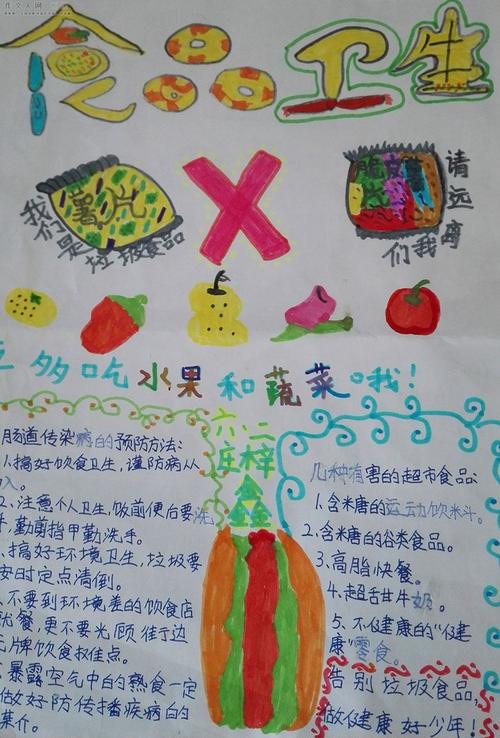 作文人网
食品卫生
薯片
我们是垃圾食品
脆
请远离
我们
多吃水果和蔬菜哦!
六·二
庄梓鑫
肠道传染病的预防方法:
1.搞好饮食卫生,谨防病从
入。
2、注意个人卫生,饭前便后要洗
手.勤剪指甲勤洗手。
.搞好环境卫生,垃圾要
定时定点清倒。
.不要到环境差的饮食店
就餐,更不要光顾
无牌饮食
.暴露空气中的熟食一定
做好防传播疾病的的
几种有害的超市食品:
1.含米糖的运动饮料。
2.含米糖的谷类食品。
3.高脂快餐。
4.超甜牛奶。
5.不健康的“健
康”零食。
告别垃圾食品,
做健康好少年!